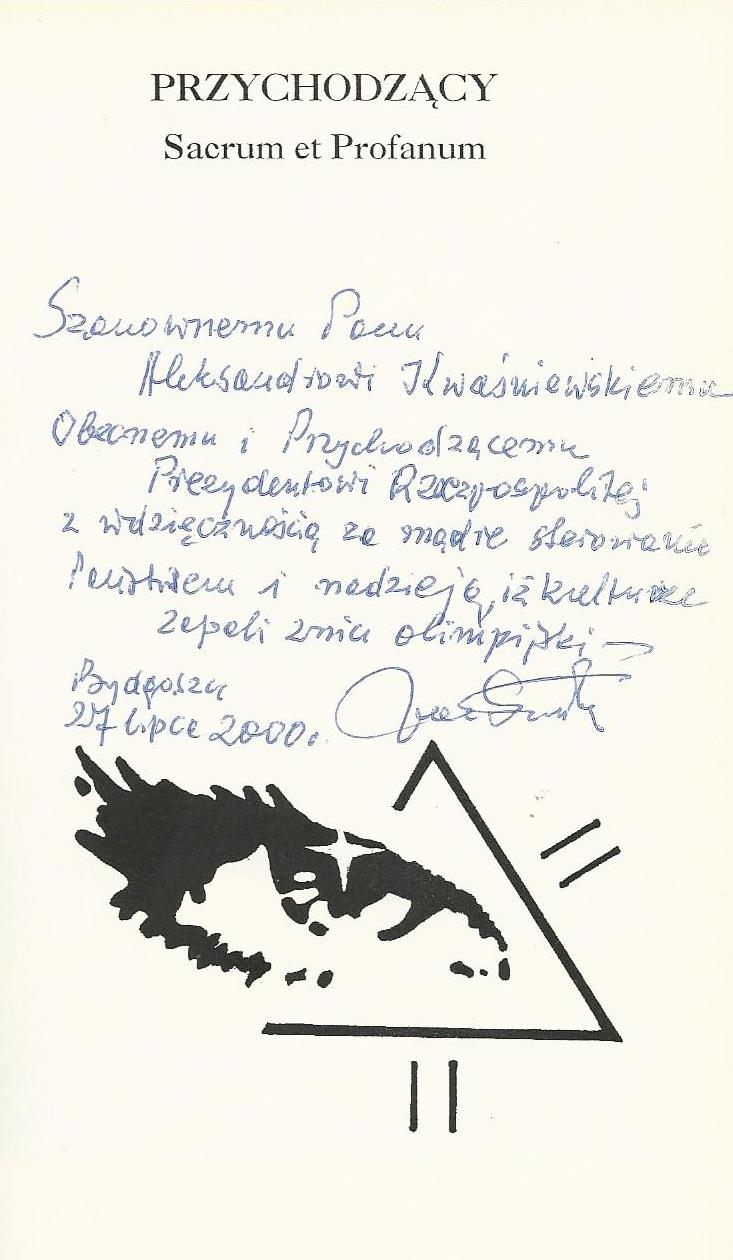 PRZYCHODZĄCY
Sacrum et Profanum
Szanownemu Panu
Aleksandrowi Kwaśniewskiemu
Obecnemu i Przychodzącemu
Prezydentowi Rzeczpospolitej
z wdzięcznością za mądre sterowanie
Państwem i nadzieją, iż kulturze
zapali znicz olimpijski
Bydgoszcz
27 lipca 2000.